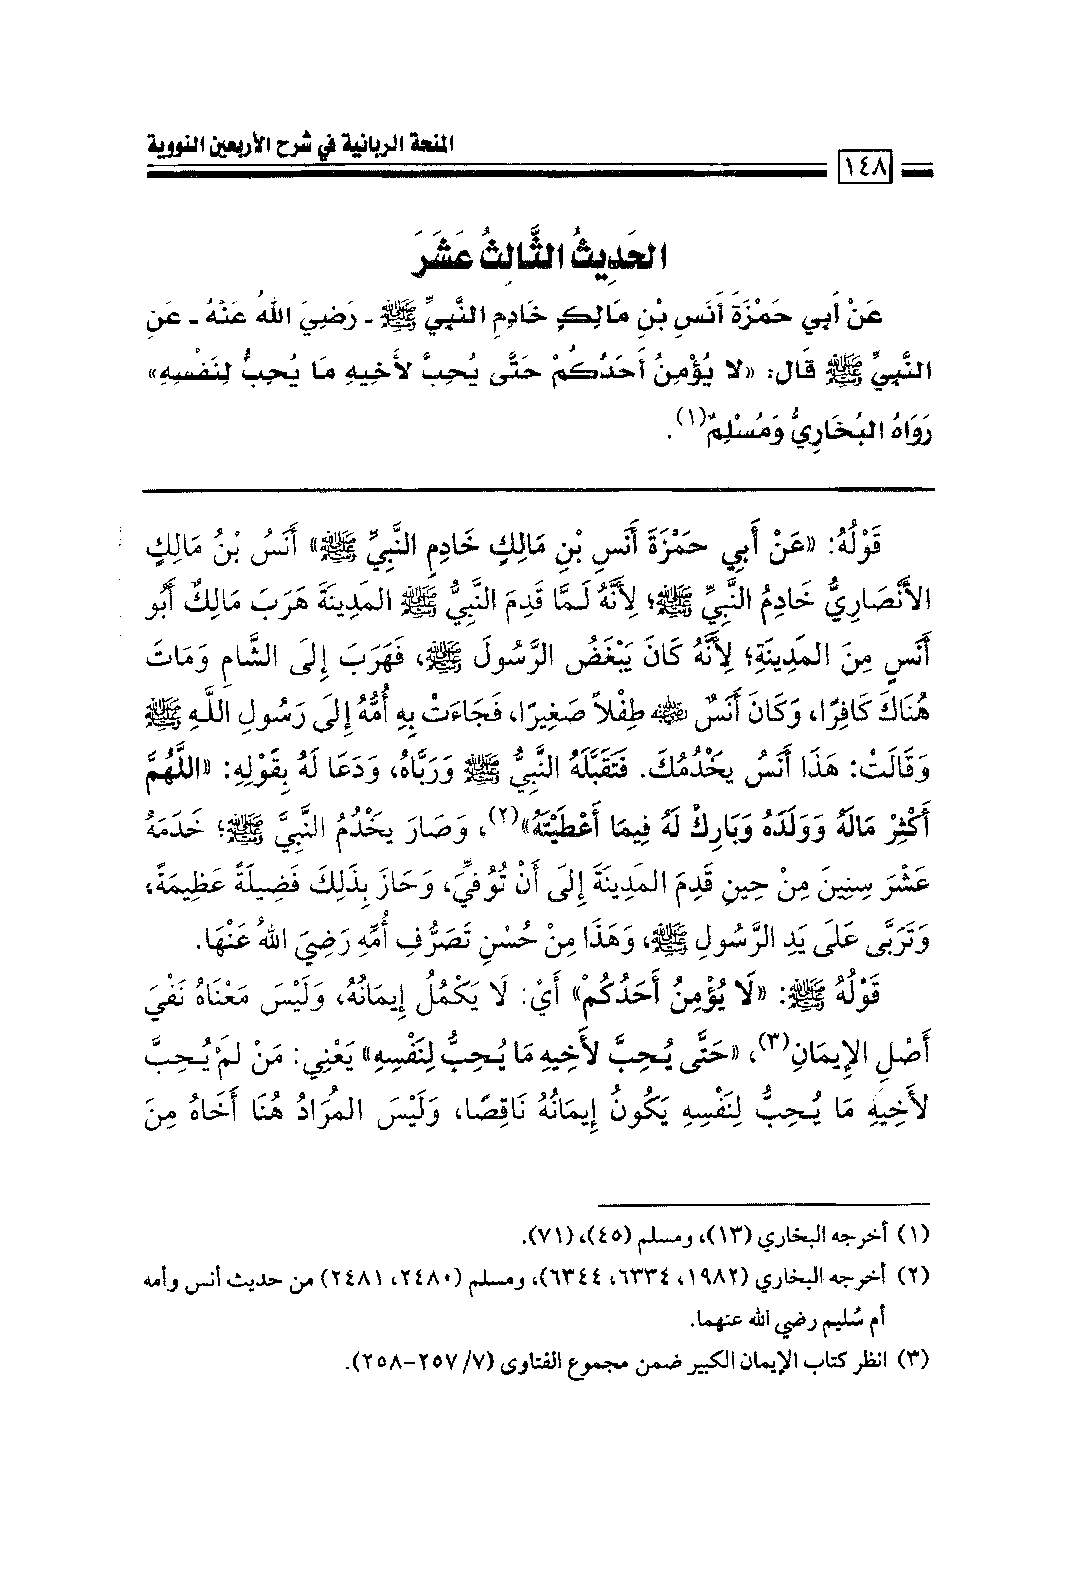 المنحة الربانية في شرح الأربعين النووية
١٤٨
الحَدِيثُ الثَّالِثُ عَشَرَ
عَنْ أَبي حَمْزَةَ أَنَسِ بْنِ مَالِكٍ خَادِمِ النَّبِيِّ ﷺ ـ رَضِيَ اللهُ عَنْهُ ـ عَنِ
النَّبِيِّ ﷺ قَالَ: «لا يُؤْمِنُ أَحَدُكُمْ حَتَّى يُحِبَّ لأَخِيهِ مَا يُحِبُّ لِنَفْسِهِ»
رَوَاهُ البُخَارِيُّ وَمُسْلِمٌ(١).
قَوْلُهُ: «عَنْ أَبِي حَمْزَةَ أَنَسِ بْنِ مَالِكٍ خَادِمِ النَّبِيِّ ﷺ» أَنَسُ بْنُ مَالِكٍ
الأَنْصَارِيُّ خَادِمُ النَّبِيِّ ﷺ؛ لِأَنَّهُ لَمَّا قَدِمَ النَّبِيُّ ﷺ المَدِينَةَ هَرَبَ مَالِكٌ أَبُو
أَنَسٍ مِنَ المَدِينَةِ؛ لِأَنَّهُ كَانَ يَبْغَضُ الرَّسُولَ ﷺ، فَهَرَبَ إِلَى الشَّامِ وَمَاتَ
هُنَاكَ كَافِرًا، وَكَانَ أَنَسٌ رضي الله عنه طِفْلاً صَغِيرًا، فَجَاءَتْ بِهِ أُمُّهُ إِلَى رَسُولِ اللَّهِ ﷺ
وَقَالَتْ: هَذَا أَنَسُ يَخْدُمُكَ. فَتَقَبَّلَهُ النَّبِيُّ ﷺ وَرَبَّاهُ، وَدَعَا لَهُ بِقَوْلِهِ: «اللَّهُمَّ
أَكْثِرْ مَالَهُ وَوَلَدَهُ وَبَارِكْ لَهُ فِيمَا أَعْطَيْتَهُ»(٢)، وَصَارَ يَخْدُمُ النَّبِيَّ ﷺ؛ خَدَمَهُ
عَشْرَ سِنِينَ مِنْ حِينِ قَدِمَ المَدِينَةَ إِلَى أَنْ تُوُفِّيَ، وَحَازَ بِذَلِكَ فَضِيلَةً عَظِيمَةً،
وَتَرَبَّى عَلَى يَدِ الرَّسُولِ ﷺ، وَهَذَا مِنْ حُسْنِ تَصَرُّفِ أُمِّهِ رَضِيَ اللهُ عَنْهَا.
قَوْلُهُ ﷺ: «لَا يُؤْمِنُ أَحَدُكُمْ» أَيْ: لَا يَكْمُلُ إِيمَانُهُ، وَلَيْسَ مَعْنَاهُ نَفْيَ
أَصْلِ الإِيمَانِ(٣)، «حَتَّى يُحِبَّ لأَخِيهِ مَا يُحِبُّ لِنَفْسِهِ» يَعْنِي: مَنْ لَمْ يُحِبَّ
لأَخِيهِ مَا يُحِبُّ لِنَفْسِهِ يَكُونُ إِيمَانُهُ نَاقِصًا، وَلَيْسَ المُرَادُ هُنَا أَخَاهُ مِنَ
(١) أخرجه البخاري (١٣)، ومسلم (٤٥)، (٧١).
(٢) أخرجه البخاري (١٩٨٢، ٦٣٣٤، ٦٣٤٤)، ومسلم (٢٤٨٠، ٢٤٨١) من حديث أنس وأمه
أم سُليم رضي الله عنهما.
(٣) انظر كتاب الإيمان الكبير ضمن مجموع الفتاوى (٧/ ٢٥٧-٢٥٨).